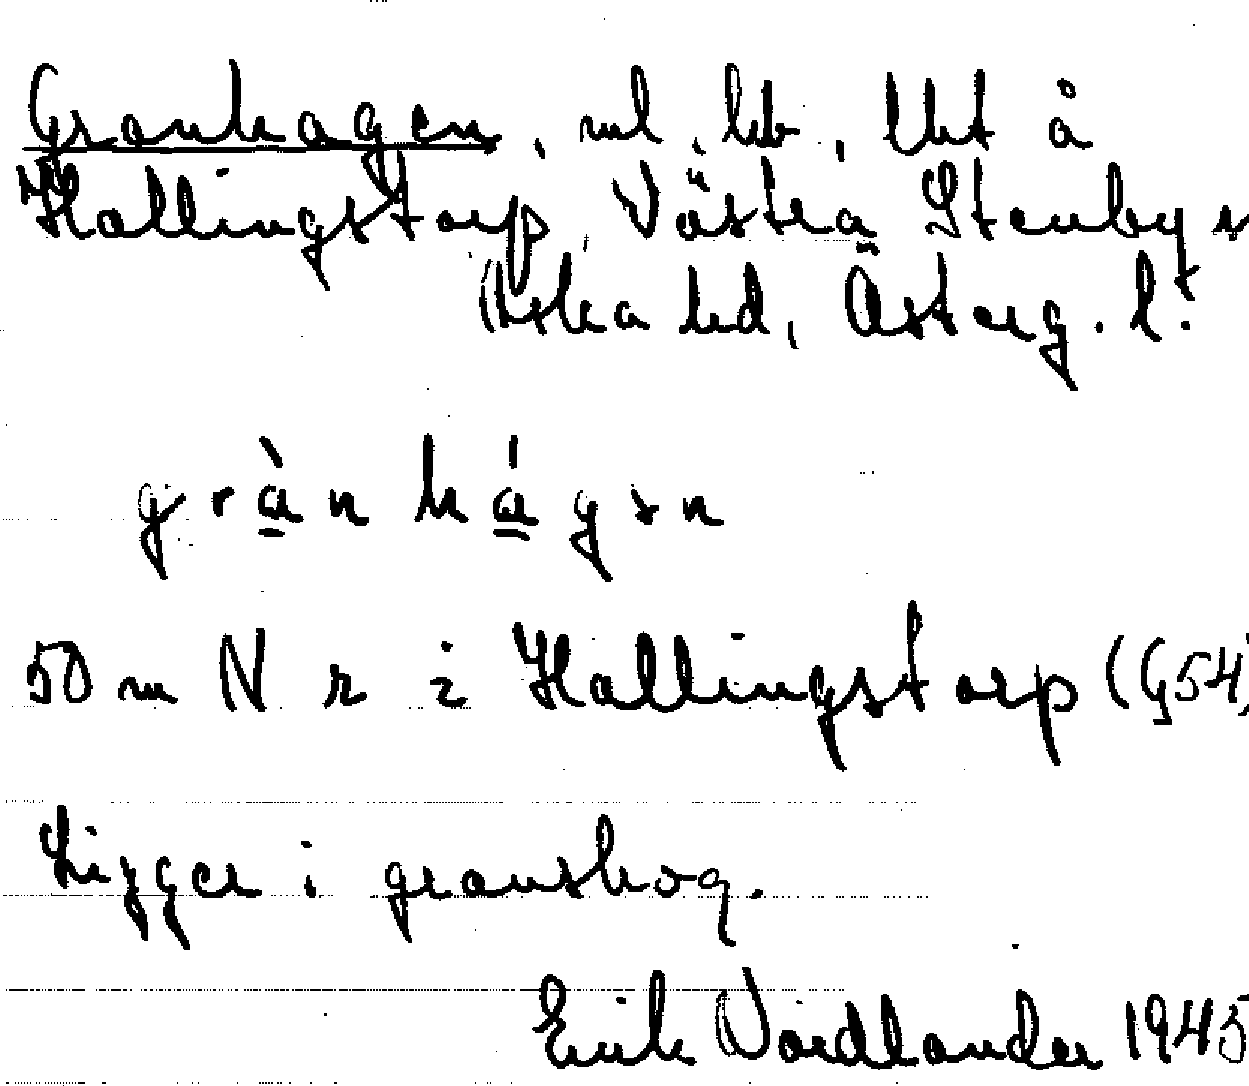 Granhagen, ml, hb, Uht å
Hallingstorp, Västra Stenby s
Aska hd, Österg. l.
grà̲n há̲gən
50 m N r i Hallingstorp (G54)
Ligger i granskog.
Erik Nordlander 1945